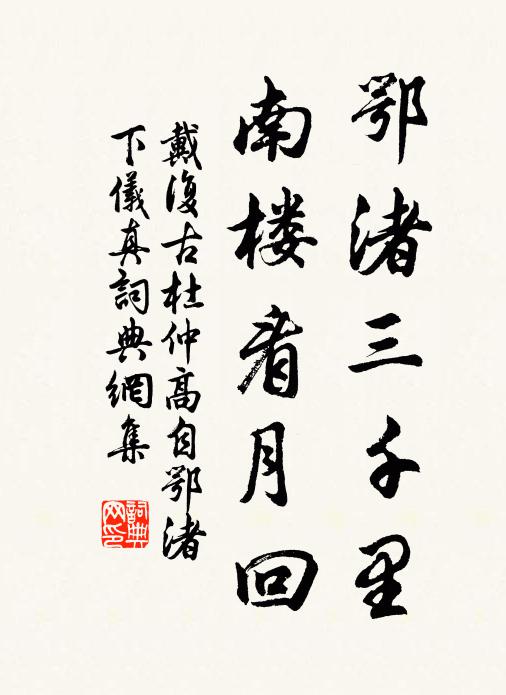 鄂渚三千里
南楼看月回
戴復古杜仲高自鄂渚
下儀真詞典網集
詞典网印